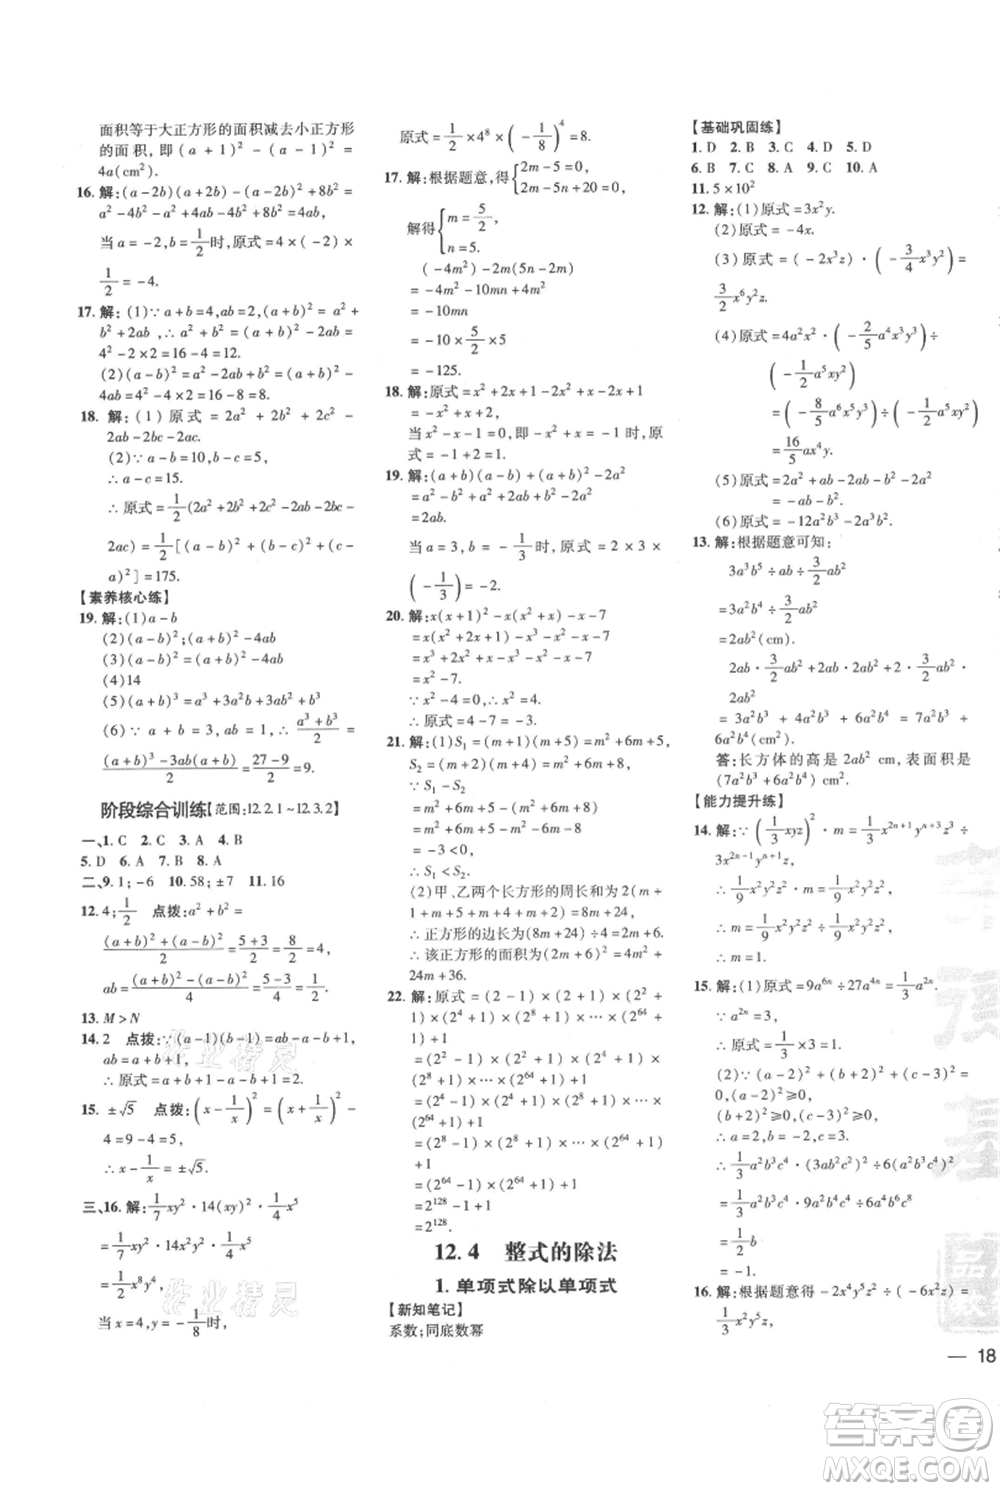 面积等于大正方形的面积减去小正方形
的面积,即(a+1)²-(a-1)²=
4a(cm²).
16. 解:(a-2b)(a+2b)-(a-2b)²+8b²=
a²-4b²-a²+4ab-4b²+8b²=4ab.
当 a=-2,b=1/2时,原式=4×(-2)×
1/2=-4.
17. 解:(1)∵a+b=4,ab=2,(a+b)²=a²+
b²+2ab,∴a²+b²=(a+b)²-2ab=
4²-2×2=16-4=12.
(2)(a-b)²=(a+b)²-4ab=
4²-4×2=16-8=8.
18. 解:(1)原式=2a²+2b²+2c²-
2ab-2bc-2ac.
(2)∵a-b=10,b-c=5,
∴a-c=15.
∴原式=1/2(2a²+2b²+2c²-2ab-2bc-
2ac)=1/2[(a-b)²+(b-c)²+(a-
c)²]=175.
【素养核心练】
19. 解:(1)a-b
(2)(a-b)²;(a+b)²-4ab
(3)(a-b)²=(a+b)²-4ab
(4)14
(5)(a+b)³=a³+3a²b+3ab²+b³
(6)∵a+b=3,ab=1,∴(a³+b³)/2=
((a+b)³-3ab(a+b))/2=(27-9)/2=9.
阶段综合训练【范围:12.2.1~12.3.2】
一、1. C 2. C 3. A 4. B
5. D 6. A 7. B 8. A
二、9. 1;-6 10. 58;±7 11. 16
12. 4;1/2 点拨:a²+b²=
((a+b)²+(a-b)²)/2=(5+3)/2=8/2=4,
ab=((a+b)²-(a-b)²)/4=(5-3)/4=1/2.
13. M>N
14. 2 点拨:∵(a-1)(b-1)=
ab-(a+b)+1,a+b=
ab=∴原式=1+1=2.
15. ±√5 点拨:(x-1/x)²=(x+1/x)²
-4=9-4=5,
∴x-1/x=±√5.
三、16. 解:1/7xy²·14(xy)²·1/4x⁵
=1/7xy²·14x²y²·1/4x⁵
=1/2x⁸y⁴.
当x=4,y=-1/8时,
原式=1/2×4⁸×(-1/8)⁴=8.
17. 解:根据题意,得{2m-5=0, 2m-5n+20=0,
解得{m=5/2, n=5.
(-4m²)-2m(5n-2m)
=-4m²-10mn+4m²
=-10mn
=-10×5/2×5
=-125.
18. 解:原式=x²+2x+1-2x-2x²-x+1
=-x²-x+2.
当x²-x-1=0,即x²+x=1时,原
式=-1+2=1.
19. 解:(a+b)(a-b)+(a+b)²-2a²
=a²-b²+a²+2ab+b²-2a²
=2ab.
当a=3,b=-1/3时,原式=2×3×
(-1/3)=-2.
20. 解:x(x+1)²-x(x²+x)-x-7
=x³+2x²+x-x³-x²-x-7
=x²-7.
∵x²-4=0,∴x²=4.
∴原式=4-7=-3.
21. 解:(1)S₁=(m+5)(m+1)=m²+6m+5,
S₂=(m+4)(m+2)=m²+6m+8.
∵S₁-S₂
=m²+6m+5-(m²+6m+8)
=m²+6m+5-m²-6m-8
=-3<0,
∴S₁<S₂.
(2)甲、乙两个长方形的周长和为2(m+
4+m+2+m+5+m+1)=8m+24,
∴正方形的边长为(8m+24)÷4=2m+6.
∴该正方形的面积为(2m+6)²=4m²+
24m+36.
22. 解:原式=(2-1)×(2+1)×(2²+
1)×(2⁴+1)×(2⁸+1)×…×(2⁶⁴+
1)+1
=(2²-1)×(2²+1)×(2⁴+1)×
(2⁸+1)×…×(2⁶⁴+1)+1
=(2⁴-1)×(2⁴+1)×(2⁸+1)×…×
(2⁶⁴+1)+1
=(2⁸-1)×(2⁸+1)×…×(2⁶⁴+1)
+1
=(2⁶⁴-1)×(2⁶⁴+1)+1
=2¹²⁸-1+1
=2¹²⁸.
12.4 整式的除法
1. 单项式除以单项式
【新知笔记】
系数;同底数幂
【基础巩固练】
1. D 2. B 3. C 4. D 5. D
6. B 7. B 8. C 9. A 10. C
11. 5×10²
12. 解:(1)原式=3x²y.
(2)原式=-4x.
(3)原式=(-2x³z)·(-3/4x³y²)=
3/2x⁶y²z.
(4)原式=4a²x²·(-2/5a⁴x³y³)÷
(-1/2a⁵xy²)
=(-8/5a⁶x⁵y³)÷(-1/2a⁵xy²)
=16/5ax⁴y.
(5)原式=2a²+ab-2ab-b²-2a²
=-ab-b².
(6)原式=-12a²b³-5a²b³=-17a²b³.
13. 解:根据题意可知:
3a³b⁵÷ab÷3/2ab²
=3a²b⁴÷3/2ab²
=2ab²(cm).
2ab·3/2ab²+2ab·2ab²+2·3/2ab²·
2ab²
=3a²b³+4a²b³+6a²b⁴=7a²b³+
6a²b⁴(cm²).
答:长方体的高是2ab² cm,表面积是
(7a²b³+6a²b⁴)cm².
【能力提升练】
14. 解:∵(1/3xyz)²·m=1/3x²ⁿ⁺¹yⁿ⁺³z⁴÷
3x²ⁿ⁻¹yⁿ⁺¹z²,
∴1/9x²y²z²·m=1/9x²y²z².
∴m=1/9x²y²z²÷1/9x²y²z².
∴m=1.
15. 解:(1)原式=9a⁶ⁿ÷27a⁴ⁿ=1/3a²ⁿ.
∵a²ⁿ=3,
∴原式=1/3×3=1.
(2)∵(a-2)²+(b+2)²+(c-3)²=0,
(a-2)²≥0,
(b+2)²≥0,(c-3)²≥0,
∴a=2,b=-2,c=3.
∴1/3a²b³c⁴·(3ab²c²)²÷6(a²b³c⁴)²
=1/3a²b³c⁴·9a²b⁴c⁴÷6a⁴b⁶c⁸
=1/2b
=-1.
16. 解:根据题意得-2x⁴y⁵z÷(-4x³y⁴z)=
1/2x²y³z,
— 18
答案卷
MXQE.COM
作业精灵